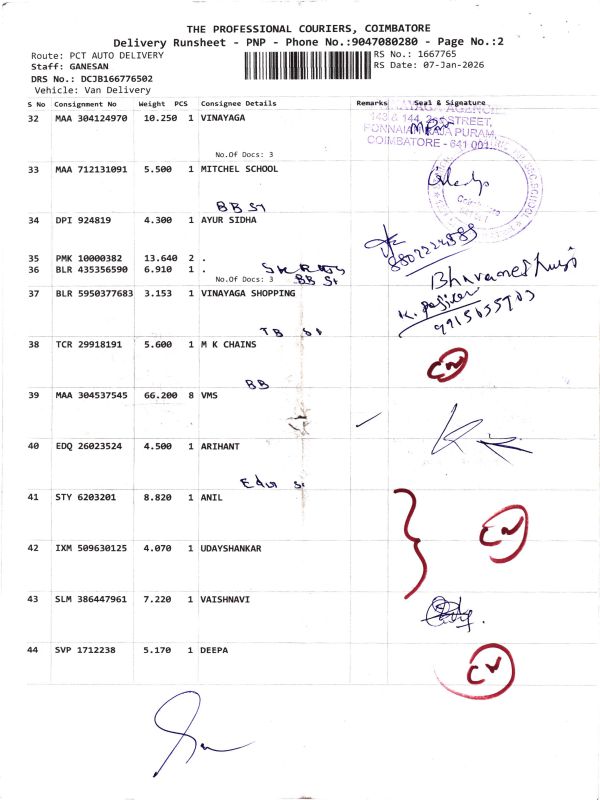 THE PROFESSIONAL COURIERS, COIMBATORE
Delivery Runsheet - PNP - Phone No.:9047080280 - Page No.:2
Route: PCT AUTO DELIVERY
RS No.: 1667765
Staff: GANESAN
RS Date: 07-Jan-2026
DRS No.: DCJB166776502
Vehicle: Van Delivery
S No Consignment No Weight PCS Consignee Details Remarks Seal & Signature
32 MAA 304124970 10.250 1 VINAYAGA
143 & 144, STREET,
PONNAIA RAJA PURAM,
COIMBATORE - 641 001
No.Of Docs: 3
33 MAA 712131091 5.500 1 MITCHEL SCHOOL
BB St
34 DPI 924819 4.300 1 AYUR SIDHA
35 PMK 10000382 13.640 2 .
36 BLR 435356590 6.910 1 .
No.Of Docs: 3 BB St
37 BLR 5950377683 3.153 1 VINAYAGA SHOPPING
TB St
38 TCR 29918191 5.600 1 M K CHAINS
CN
BB
39 MAA 304537545 66.200 8 VMS
40 EDQ 26023524 4.500 1 ARIHANT
41 STY 6203201 8.820 1 ANIL
CN
42 IXM 509630125 4.070 1 UDAYSHANKAR
43 SLM 386447961 7.220 1 VAISHNAVI
44 SVP 1712238 5.170 1 DEEPA
CN